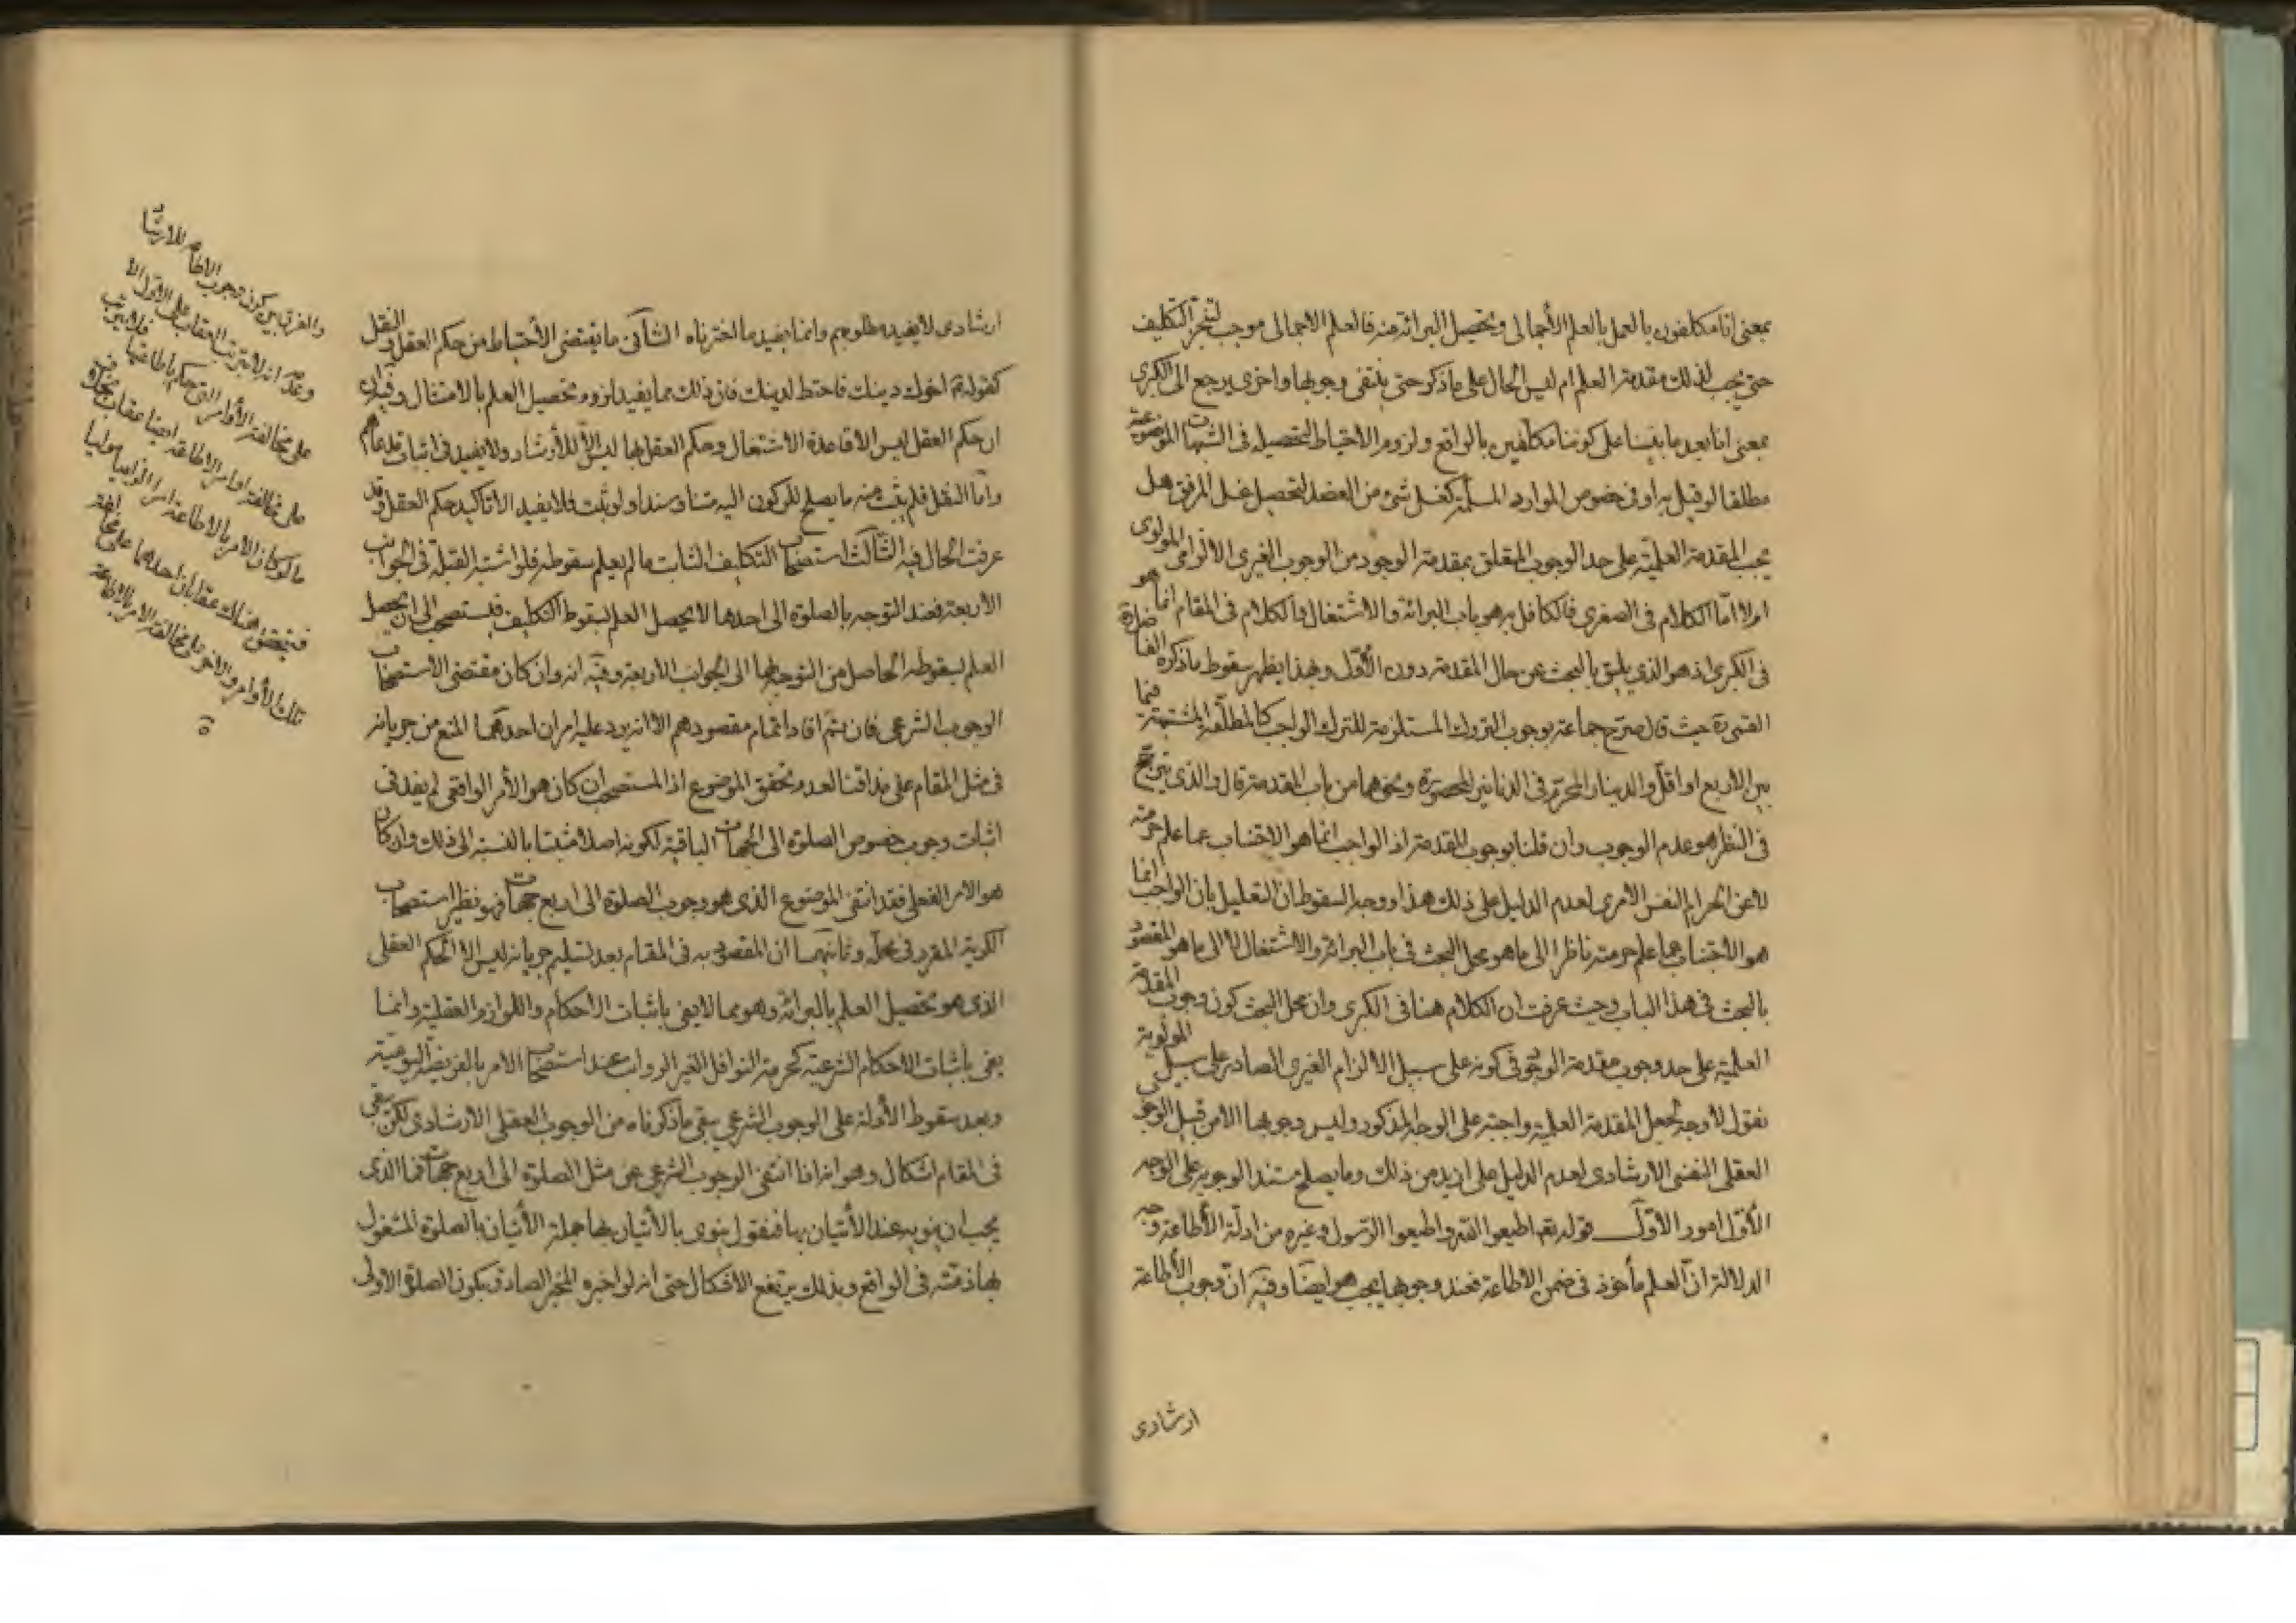 بمعنى انا مكلفون بالعمل بالعلم الأجمالى وتحصيل البرائة منه فالعلم الاجمالى موجب لتنجز التكليف
حتى يجب لذلك مقدمة العلم ام ليس الحال على ما ذكر حتى ينتفى وجوبها واخرى يرجع الى الكبرى
بمعنى انا بعد ما بنينا على كوننا مكلفين بالواقع ولزوم الاحتياط لتحصيله فى الشبهات الموضوعية
مطلقا لو قيل به او فى خصوص الموارد المسلمة كغسل شئ من العضد لتحصيل غسل المرفق هل
يجب المقدمة العلمية على حد الوجوب المتعلق بمقدمة الوجود من الوجوب الغيرى الالزامى المولوى
اولا امّا الكلام فى الصغرى فالكافل به هو باب البرائة والاشتغال فالكلام فى المقام انما هو
فى الكبرى اذ هو الذى يليق بالبحث عن حال المقدمة دون الأوّل وبهذا يظهر سقوط ما ذكره الفاضل
القمى ره حيث قال صرح جماعة بوجوب التروك المستلزمة للترك الواجب كالمطلّقة المشتبهة فيما
بين الاربع او اقل والدينار المحرّم فى الدنانير المحصورة ونحوهما من باب المقدمة قال والذى يترجّح
فى النظر هو عدم الوجوب وان قلنا بوجوب المقدمة اذ الواجب انما هو الاجتناب عما علم حرمته
لا عن الحرام النفس الامرى لعدم الدليل على ذلك هذا ووجه السقوط ان التعليل بان الواجب انما
هو الاجتناب عما علم حرمته ناظر الى ما هو محل البحث فى باب البرائة والاشتغال لا الى ما هو المقصود
بالبحث فى هذا الباب وحيث عرفت ان الكلام هنا فى الكبرى وان محل البحث كون وجوب المقدمة
العلمية على حد وجوب مقدمة الوجود فى كونه على سبيل الالزام الغيرى الصادر على سبيل المولوية
نقول لا وجه لجعل المقدمة العلمية واجبة على الوجه المذكور وليس وجوبها الا من قبيل الوجوب
العقلى النفسى الارشادى لعدم الدليل على ازيد من ذلك وما يصلح مستند الوجوبه على الوجه
الأوّل امور الأوّل قوله تعم اطيعوا الله واطيعوا الرّسول وغيره من ادلّة الأطاعة وجه
الدلالة انّ العلم مأخوذ فى ضمن الاطاعة فعند وجوبها يجب هو ايضا وفيه انّ وجوب الأطاعة
ارشادى
ارشادى لا يفيد مطلوبهم وانما يفيد ما اخترناه الثانى ما يقتضى الأحتياط من حكم العقل والنقل
كقوله ع اخوك دينك فاحتط لدينك فان ذلك مما يفيد لزوم تحصيل العلم بالامتثال وفيه
ان حكم العقل ليس الا قاعدة الاشتغال وحكم العقل بها ليس الّا للأرشاد ولا يفيد فى اثبات
وامّا النقل فلم يثبت منه ما يصلح للركون اليه متنا وسندا ولو ثبت فلا يفيد الا تاكيد حكم العقل وقد
عرفت الحال فيه الثّالث استصحاب التكليف الثابت ما لم يعلم سقوطه فلو اشتبه القبلة فى الجوانب
الاربعة فعند التوجه بالصلوة الى احدها لا يحصل العلم بسقوط التكليف فيستصحب الى ان يحصل
العلم بسقوطه الحاصل من التوجه بها الى الجوانب الأربعة وفيه انه وان كان مقتضى الاستصحاب
الوجوب الشرعى فان تمّ افاد اتمام مقصودهم الا انه يرد عليه امران احدهما المنع من جريانه
فى مثل المقام على مذاقنا لعدم تحقق الموضوع اذ المستصحب ان كان هو الأمر الواقعى لم يفد فى
اثبات وجوب خصوص الصلوة الى الجهات الباقية لكونه اصلا مثبتا بالنسبة الى ذلك وان كان
هو الامر الفعلى فقد انتفى الموضوع الذى هو وجوب الصلوة الى اربع جهات فهو نظير استصحاب
الكرية المقرر فى محلّه وثانيهما ان المقصود به فى المقام بعد تسليم جريانه ليس الا الحكم العقلى
الذى هو تحصيل العلم بالبرائة وهو مما لا يفى باثبات الاحكام واللوازم العقلية وانما
يفى باثبات الاحكام الشرعية كحرمة النوافل الغير الرواتب عند استصحاب الامر بالفريضة اليومية
وبعد سقوط الأدلة على الوجوب الشرعى يبقى ما ذكرناه من الوجوب العقلى الارشادى لكن يبقى
فى المقام اشكال وهو انه اذا انتفى الوجوب الشرعى عن مثل الصلوة الى اربع جهات فما الذى
يجب ان ينويه عند الأتيان بها فنقول ينوى بالأتيان بها جملة الأتيان بالصلوة المشغول
بها ذمته فى الواقع وبذلك يرتفع الاشكال حتى انه لو اخبره المخبر الصادق بكون الصلوة الاولى
والفرق بين كون وجوب الاطاعة للارشاد
وعدمه انه لا يترتب العقاب على الاول الا
على مخالفة الأوامر التى حكم باطاعتها فلا يترتب
على مخالفة اوامر الاطاعة ايضا عقاب بخلاف
ما لو كان الامر بالاطاعة امرا الزاميا مولويا
فيتحقق هناك عقابان احدهما على مخالفة
تلك الأوامر والاخر على مخالفة الامر بالاطاعة